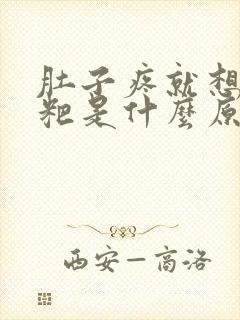 肚子疼就想
粑是什麼原
西安—高洛